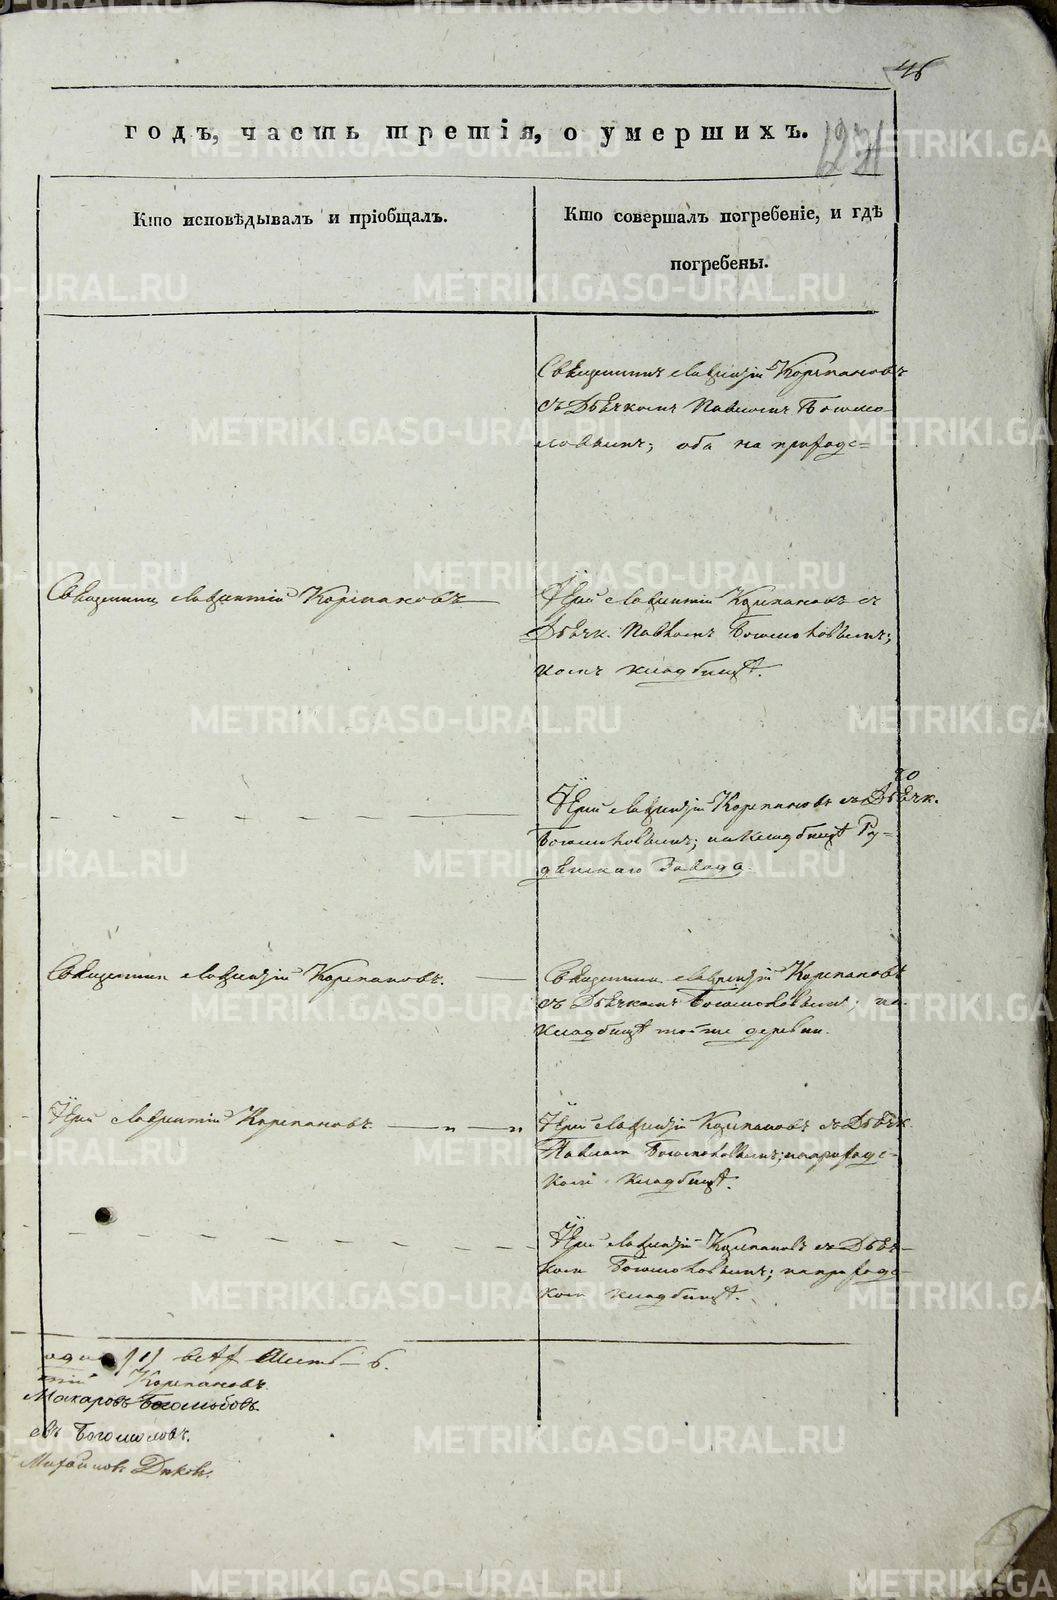 46
годъ, часть третія, о умершихъ.
Кто исповѣдывалъ и пріобщалъ.
Кто совершалъ погребеніе, и гдѣ
погребены.
Священникъ Лаврентій Корепановъ
съ Дьячкомъ Павломъ Богомо-
ловымъ; оба на приходс=
Священник Лаврентій Корепановъ
Іерей Лаврентій Корепановъ съ
Дьячк. Павломъ Богомоловымъ;
комъ кладбищѣ.
Іерей Лаврентій Корепановъ съ Дьячк.
Богомоловымъ; на кладбищѣ Ру-
Завода
Священник Лаврентій Корепановъ.
Священник Лаврентій Корепановъ
съ Дьячкомъ Богомоловымъ; на
кладбищѣ той же деревни.
Іерей Лаврентій Корепановъ.
Іерей Лаврентій Корепановъ съ Дьячк.
Павломъ Богомоловымъ; на приходс-
комъ кладбищѣ.
Іерей Лаврентій Корепановъ съ Дьяч-
комъ Богомоловымъ; на приходс-
комъ кладбищѣ.
тій Корепановъ.
Макаровъ
въ Богомоловъ.
METRIKI.GASO-URAL.RU